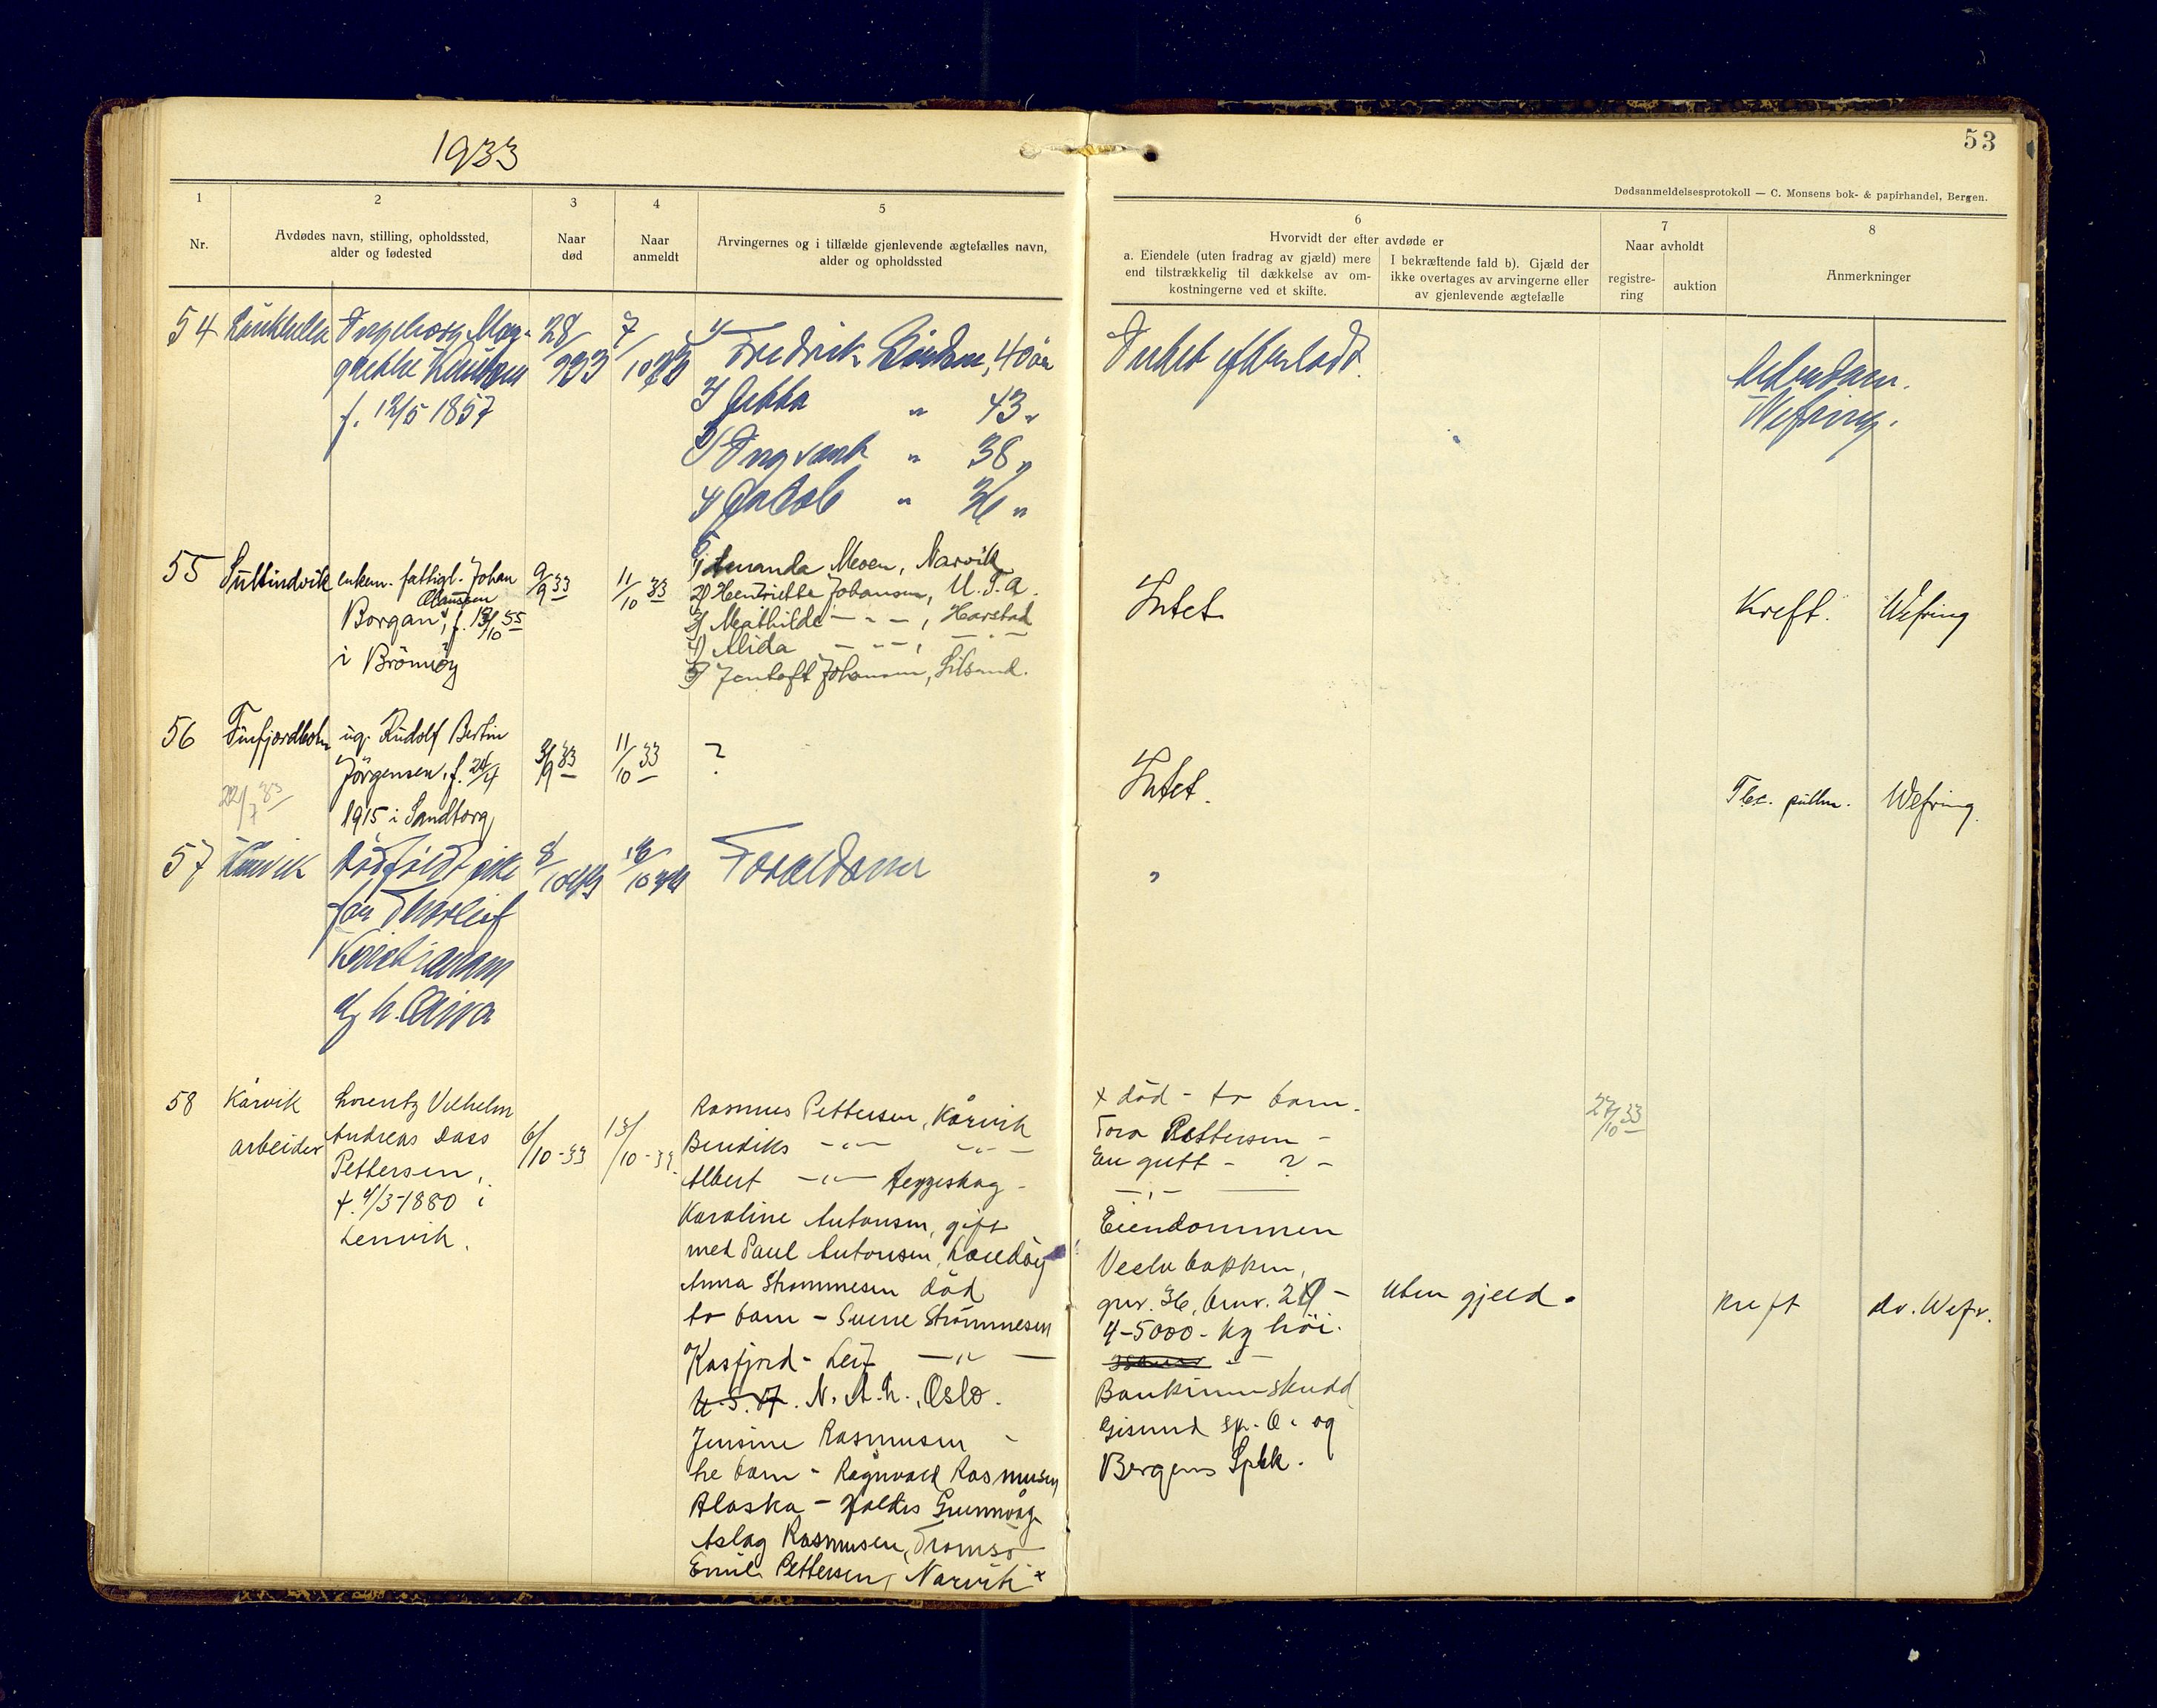 1933
53
Dødsanmeldelsesprotokoll — C. Monsens bok- & papirhandel, Bergen.
1
2
3
4
5
6
7
8
Nr.
Avdødes navn, stilling, opholdssted,
alder og fødested
Naar
død
Naar
anmeldt
Arvingernes og i tilfælde gjenlevende ægtefælles navn,
alder og opholdssted
Hvorvidt der efter avdøde er
a. Eiendele (uten fradrag av gjæld) mere
end tilstrækkelig til dækkelse av om-
kostningerne ved et skifte.
I bekræftende fald b). Gjæld der
ikke overtages av arvingerne eller
av gjenlevende ægtefælle
Naar avholdt
registre-
ring
auktion
Anmerkninger
54
Laukhella
Ingeborg Mar-
grethe
f. 12/5 1857
28/
933
7/
10 33
1/ Fredrik 40 år
2/ " 43 "
3/ Ingvart " 38 "
4/ Jakob " 36 "
Intet efterladt.
Alderdom.
Wefring.
55
Sultindvik
enkem. fattigl. Johan
Claussen
Borgan, f. 13/10 55
i Brönnöy
9/9 33
11/10 33
1) Amanda Moen, Narvik
2) Hentriette Johansen, U.S.A.
3) Mathilde — " —, Harstad
4) Alida — " —, — " —
5) Jentoft Johansen, Lilsand.
Intet.
Kreft.
Wefring
56
Finfjordbotn
22/7 33
ug. Rudolf Bertin
Jörgensen, f. 24/4
1915 i Sandtorg
3/9 33
11/10 33
?
Intet.
Tbc. pulm.
Wefring.
57
Dödfödt pike
for Thorleif
Kristiansen
og h.
8/
10 33
16/
10 33
Forældrene
"
58
Kårvik
arbeider
Lorentz Vilhelm
Andreas Dass
Pettersen,
f. 4/3-1880 i
Lenvik.
6/
10-33
13/
10-33
Rasmus Pettersen, Kårvik
Bendiks — " — — " —
Albert — " — Heggeskog -
Karoline Antonsen, gift
med Paul Antonsen, Lauköy
Anna Strømmesen död
to barn - Sverre Strømmesen
Kasfjord - Leif — " —
U.S.A. N. A. L., Oslo.
Jensine Rasmusen -
tre barn - Ragnvald Rasmusen
Alaska - Haldis Grunnvåg
Aslag Rasmusen, Tromsö
Emil Pettersen, Narvik x
x död - to barn.
Tora Pettersen -
En gutt - ? -
— " —
Eiendommen
Veslebakken,
gnr. 36, bnr. 29 -
4-5000 - kg höi.
Bankinnskudd
Gisund sp. b. og
Bergens Spbk.
uten gjeld.
27/10 33
Kreft
dr. Wefr.